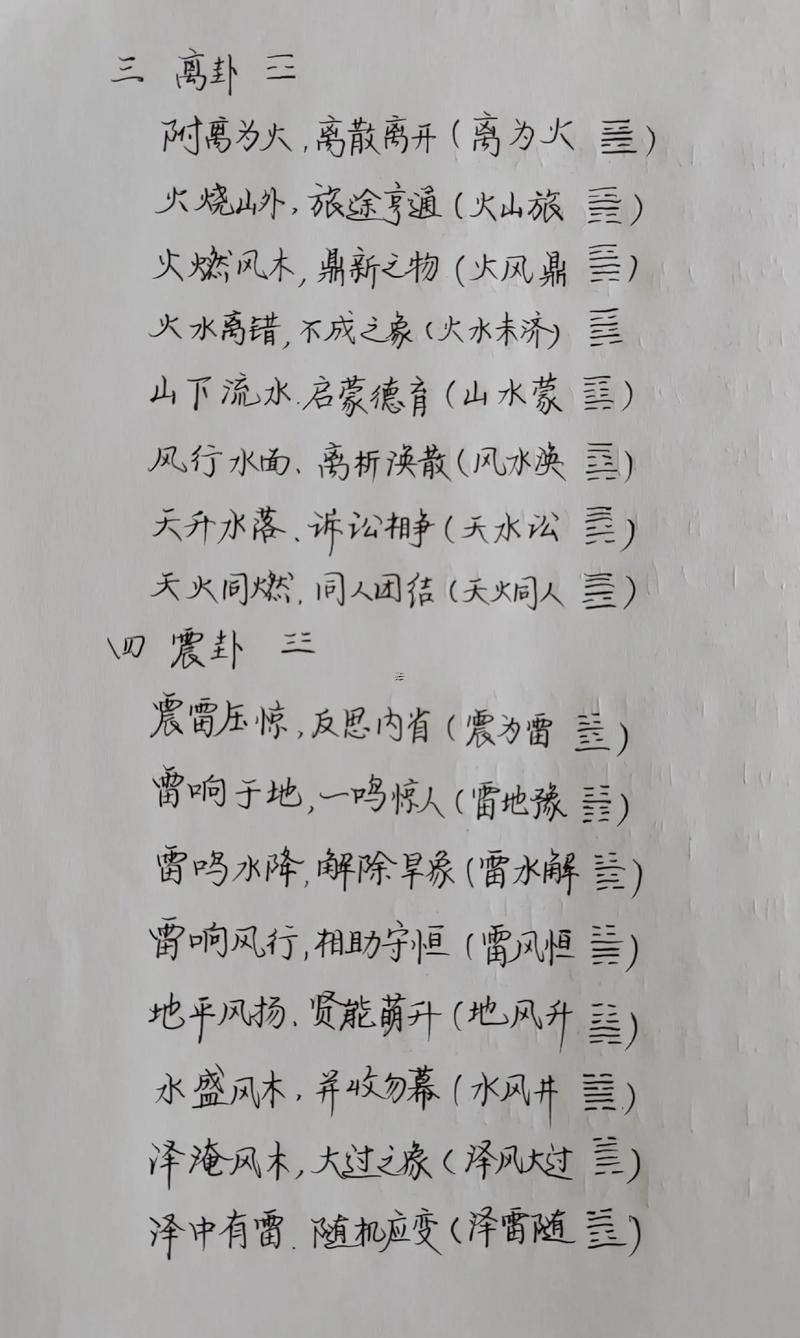 三 离卦 ☲
附离为火,离散离开(离为火 ䷝)
火烧山外,旅途亨通(火山旅 ䷷)
火燃风木,鼎新之物(火风鼎 ䷱)
火水离错,不成之象(火水未济) ䷿
山下流水.启蒙德育(山水蒙 ䷃)
风行水面、离析涣散(风水涣 ䷺)
天升水落、诉讼相争(天水讼 ䷅)
天火同燃,同人团结(天火同人 ䷌)
四 震卦 ☳
震雷压惊,反思内省(震为雷 ䷲)
雷响于地,一鸣惊人(雷地豫 ䷏)
雷鸣水降,解除旱象(雷水解 ䷧)
雷响风行,相助守恒(雷风恒 ䷟)
地平风扬、贤能萌升(地风升 ䷭)
水盛风木,井收勿幕(水风井 ䷯)
泽淹风木,大过之象(泽风大过 ䷛)
泽中有雷.随机应变(泽雷随 ䷐)